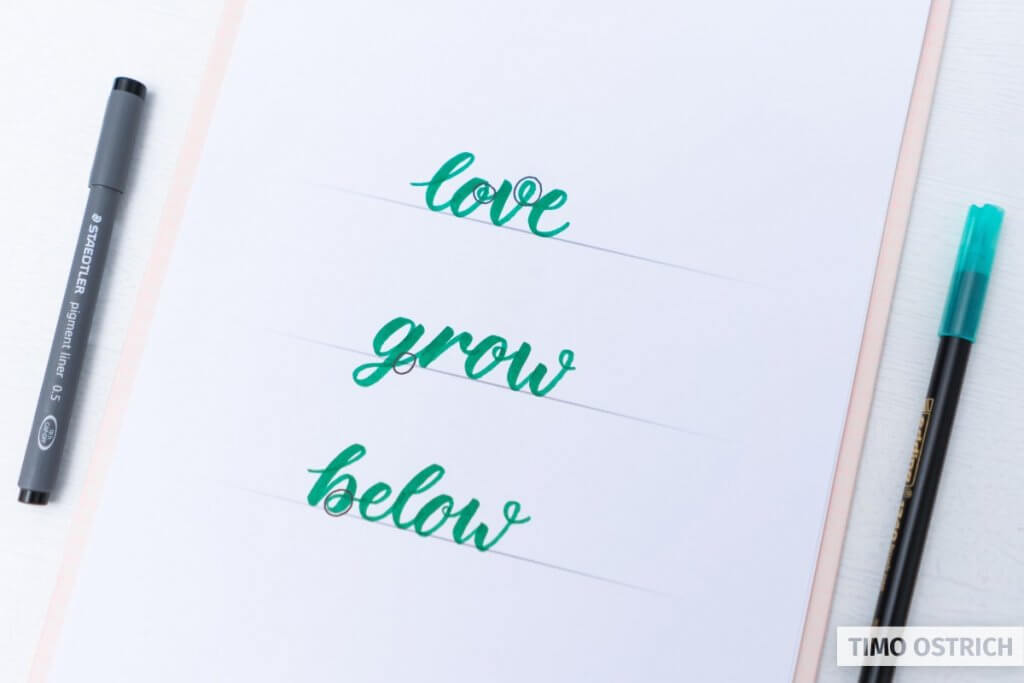 love
grow
below
STAEDTLER
pigment liner 0.5
TIMO OSTRICH